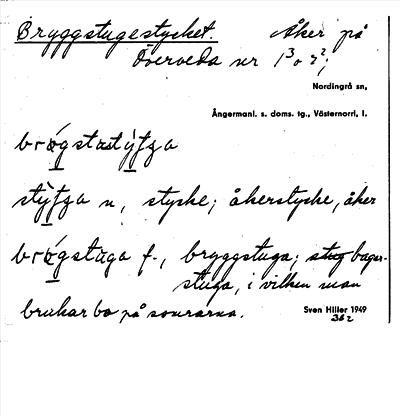 Bryggstugestycket. Åker på
Överveda nr 1³ o 2²;
Nordingrå sn,
Ångermanl. s. doms. tg., Västernorrl. l.
n, stycke; åkerstycke, åker
f., bryggstuga; bager-
stuga, i vilken man
brukar bo på somrarna.
Sven Hiller 1949